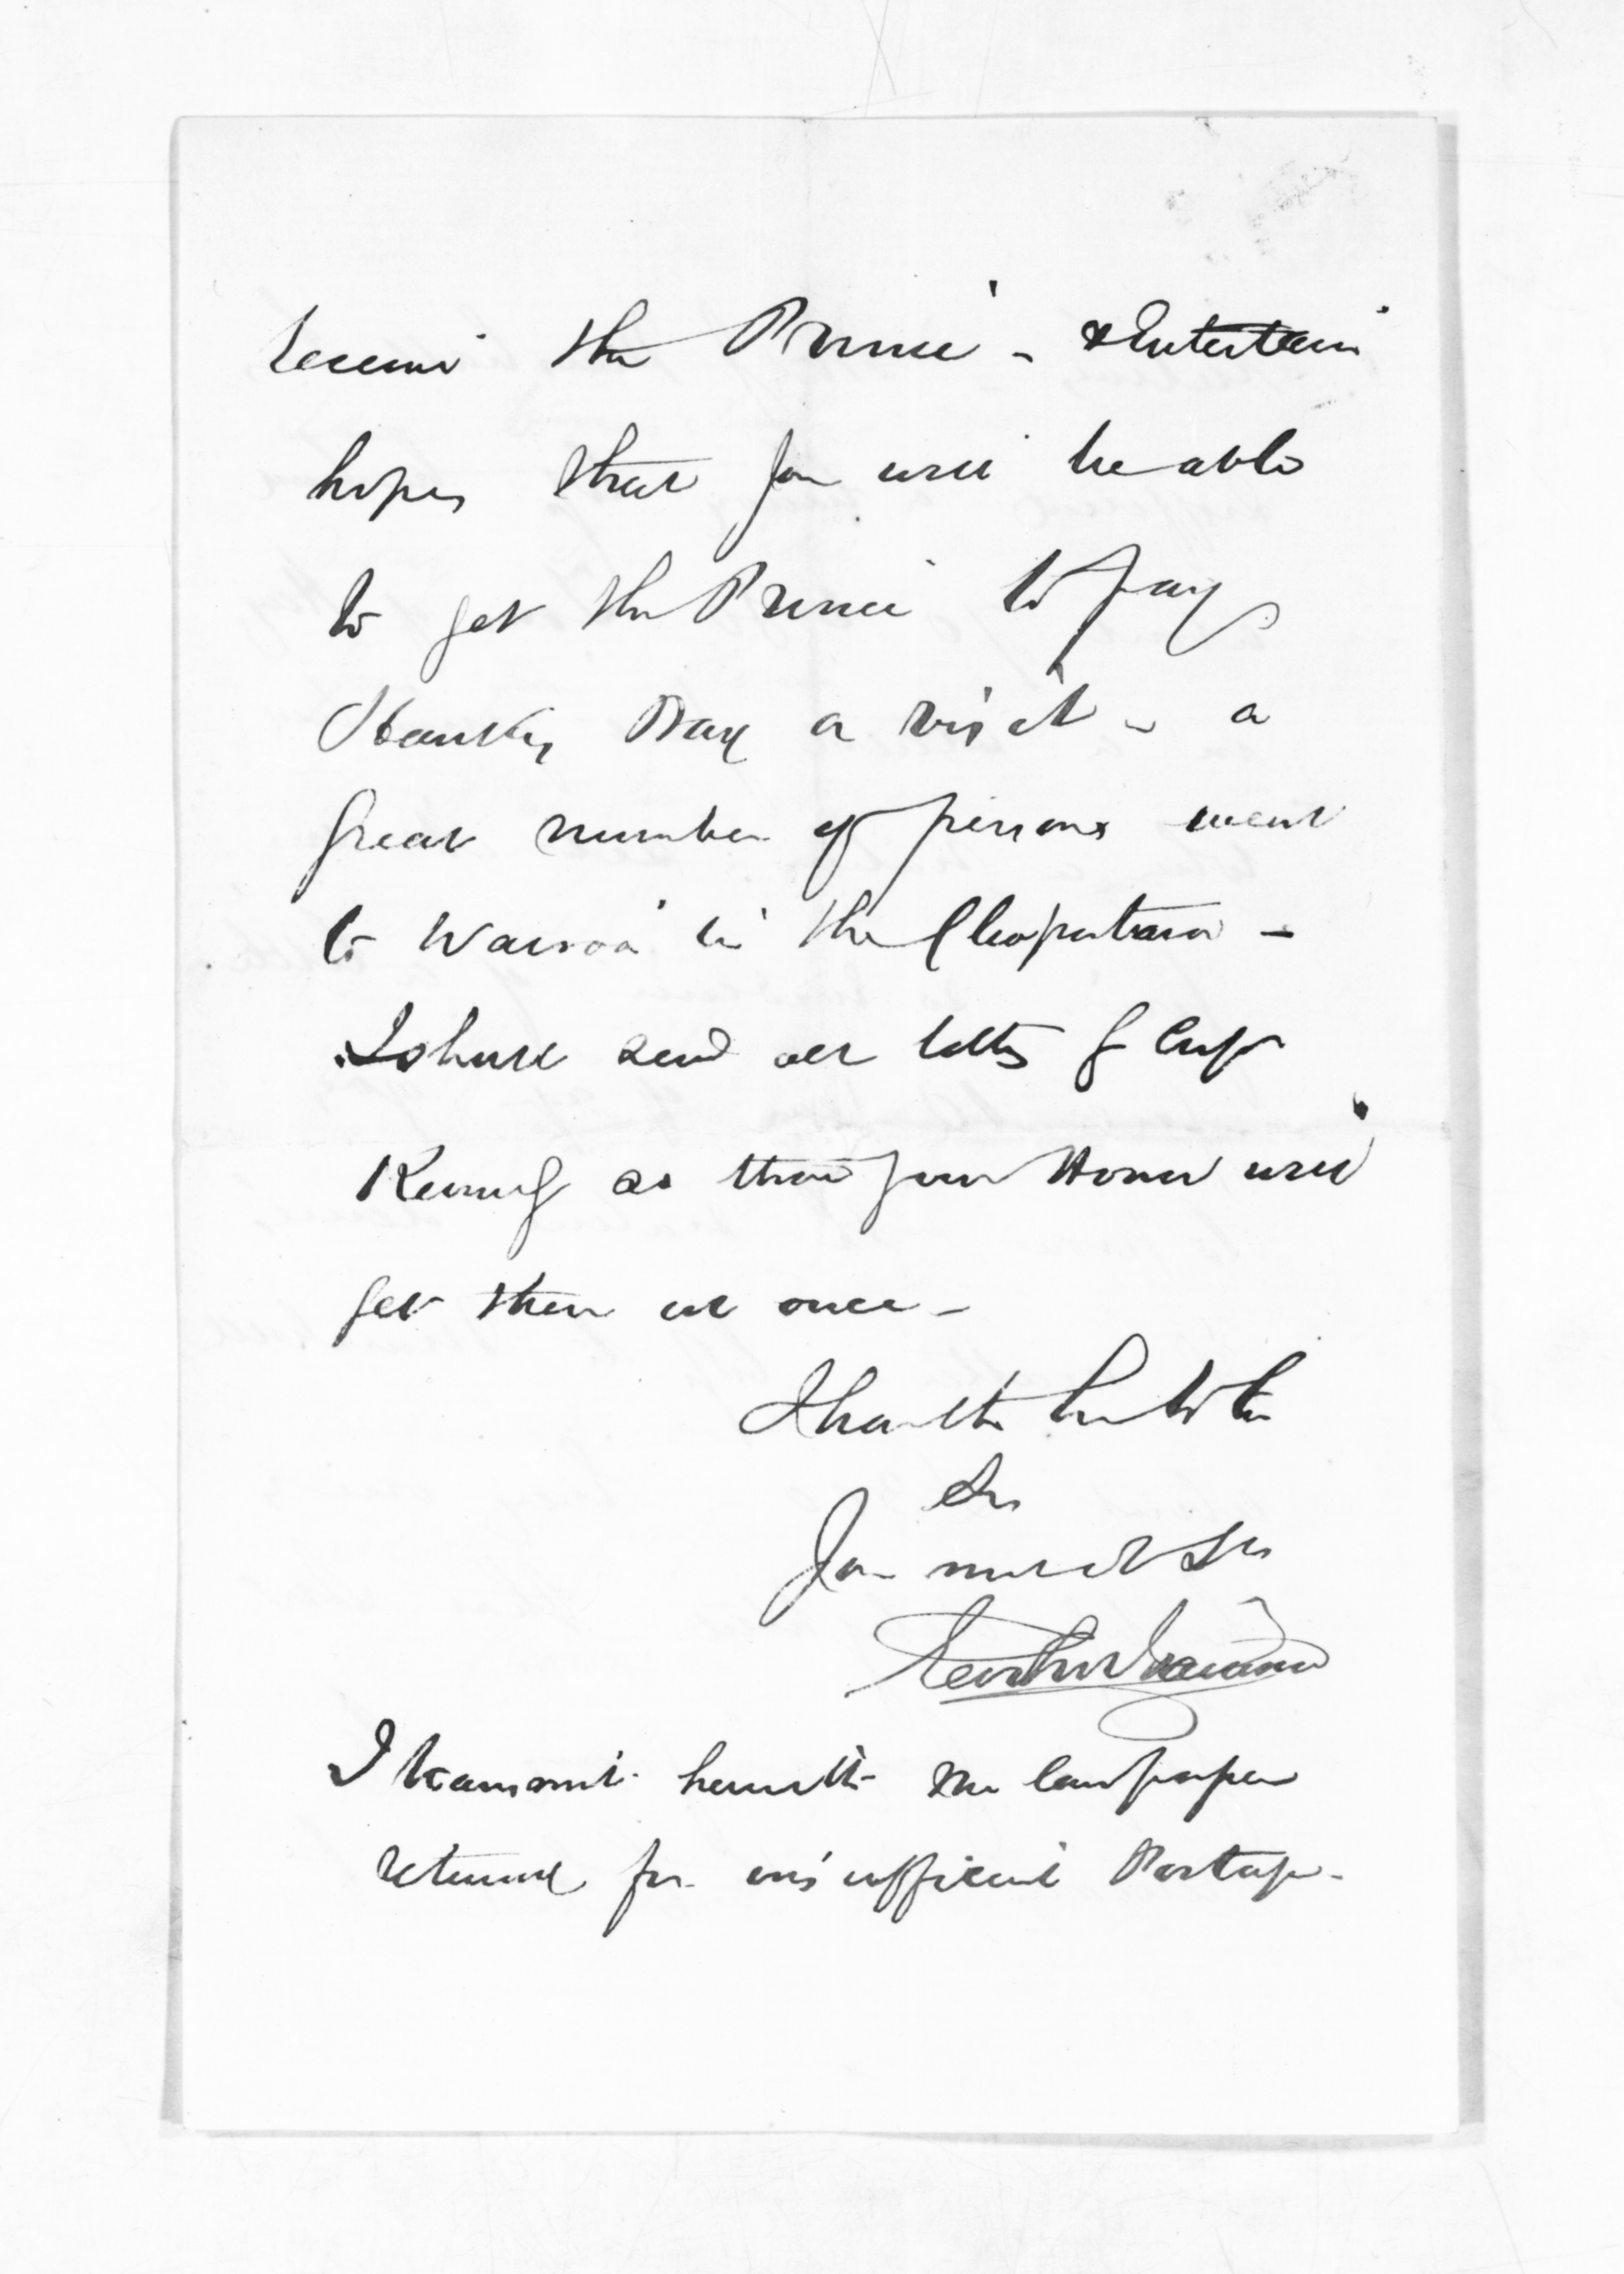 receive the Prince - & entertain
hopes that you will be able
to get the Prince to pay
Hawkes Bay a visit - a
great number of persons went
to Wairoa in the Cleopatra -
I shall send all letters & Cups
as then your Honor will
get them at once -
I have the honor to be
Sir
Your most ob Ser
I transmit herewith the law paper
returned for insufficient Postage -